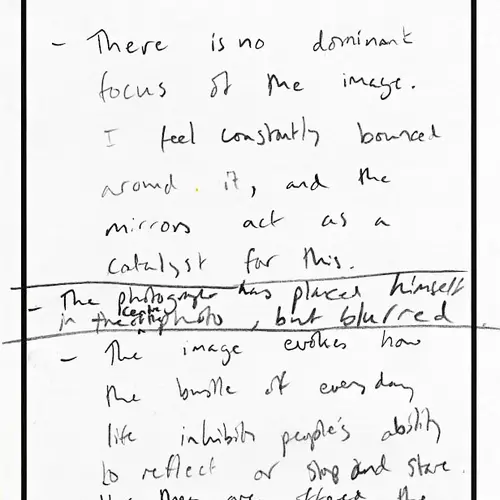 - There is no dominant
focus of the image.
I feel constantly bounced
around it, and the
mirrors act as a
catalyst for this.
- The photographer has placed himself
in the centre photo, but blurred
- The image evokes how
the bustle of every day
life inhibits people's ability
to reflect or stop and stare.